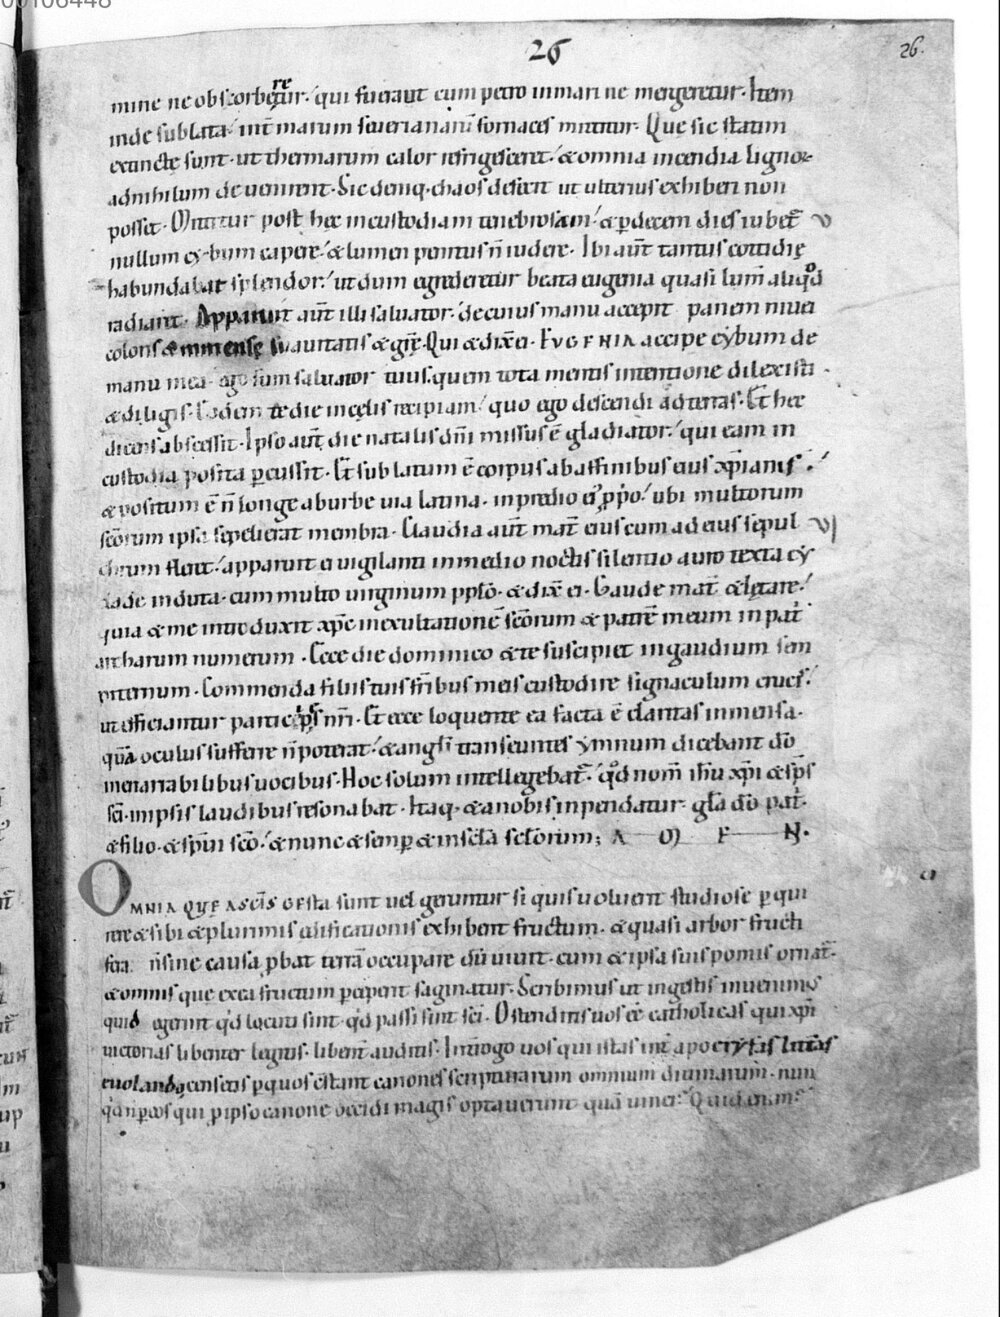 00106448
26
26.
mine ne obsorberetur. qui fuerant cum petro in mari ne mergeretur. Item
inde sublata. int̄ marum seuerianarū fornaces mittitur. Que sic statim
exunctę sunt. ut thermarum calor refrigesceret. & omnia incendia lignoꝝ
adnihilum deuenirent. Sic deniq. chaos defecit ut ulterius exhiberi non
posset. Mittitur post hec incustodiam tenebrosam. & p̱ decem dies iubet̄
nullum cybum capere. & lumen penitus n̄ uidere. Ibi aut̄ tantus cottidię
habundabat splendor. ut dum egrederetur beata eugenia quasi lum̄ aliqd̊
radiaret. Apparuit aut̄ illi saluator. de cuius manu accepit panem niuei
coloris & immensę suauitatis & grē. Qui & dix̄ ei. EVGENIA accipe cybum de
manu mea. ego sum saluator tuus. quem tota mentis intentione dilexisti.
& diligis. Eodem te die incęlis recipiam. quo ego descendi ad terras. Et hec
dicens abscessit. Ipso aut̄ die natalis dn̄i missus ē gladiator. qui eam in
custodia posita p̱cussit. Et sublatum ē corpus ab affinibus eius xp̄ianis.
& positum ē n̄ longe aburbe uia latina. inpredio ei ꝓpo. ubi multorum
sc̄orum ipsa sepelierat membra. Claudia aut̄ mat̄ eius cum ad eius sepul
chrum fleret. apparuit ei uigilanti inmedio noctis silentio auro texta cy
clade induta. cum multo uirginum pplo. & dix̄ ei. Gaude mat̄ & lętare.
quia & me introduxit xp̄c inexultationē sc̄orum & patrē meum inpat
archarum numerum. Ecce die dominico & te suscipiet ingaudium sem
piternum. Commenda filiis tuis fr̄ibus meis custodire signaculum crucis.
ut efficiantur participes nr̄i. Et ecce loquente ea facta ē claritas inmensa.
quā oculus sufferre n̄ poterat. & angli transeuntes ymnum dicebant dō
inenarrabilibus uocibus. Hoc solum intellegebat̄. qd̊ nom̄ ihū xpī & sp̄s
sc̄i. inipsis laudibus resonabat. Itaq. & anobis inpendatur. gla dō pat.
& filio. & sp̄ui sc̄o. & nunc & semp̱ & insecla seclorum; A M E N.
OMNIA QUE ASCĪS GESta sunt uel geruntur si quis uoluerit studiose p̱qui
rere & sibi & plurimis ędificationis exhibent fructum. & quasi arbor fructi
fera n̄ sine causa ꝓbat terrā occupare dū uiuit. cum & ipsa suis pomis ornat̄.
& omnis que exea fructum p̱ceperit saginatur. Scribimus ut ingestis inuenimus
quid egerint qd̊ locuti sint. qd̊ passi sint sc̄i. Ostenditis uos eē catholicos qui xpī
uictorias libenter legitis. libent̄ auditis. Interrogo uos qui istas int̄ apocryfas litt̄as
euolandas censetis p̱ quos constant canones scripturarum omnium diuinarum. num
qd̊ n̄ p̱ eos qui ꝓipso canone occidi magis optauerunt quā uinci. Quid enim